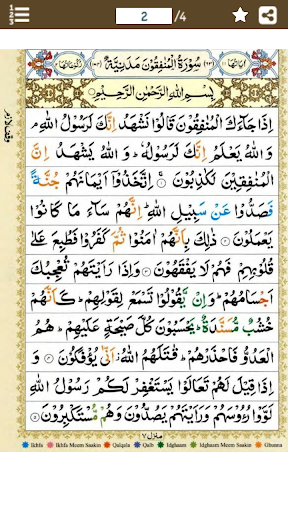 2 /4
سُوْرَةُ الْمُنٰفِقُوْنَ مَدَنِيَّةٌ
بِسْمِ اللّٰهِ الرَّحْمٰنِ الرَّحِيْمِ
اِذَا جَآءَكَ الْمُنٰفِقُوْنَ قَالُوْا نَشْهَدُ اِنَّكَ لَرَسُوْلُ اللّٰهِ ۘ
وَ اللّٰهُ يَعْلَمُ اِنَّكَ لَرَسُوْلُهٗ ؕ وَ اللّٰهُ يَشْهَدُ اِنَّ
الْمُنٰفِقِيْنَ لَكٰذِبُوْنَ ۚ اِتَّخَذُوْۤا اَيْمَانَهُمْ جُنَّةً
فَصَدُّوْا عَنْ سَبِيْلِ اللّٰهِ ؕ اِنَّهُمْ سَآءَ مَا كَانُوْا
يَعْمَلُوْنَ ۝ ذٰلِكَ بِاَنَّهُمْ اٰمَنُوْا ثُمَّ كَفَرُوْا فَطُبِعَ عَلٰى
قُلُوْبِهِمْ فَهُمْ لَا يَفْقَهُوْنَ ۝ وَاِذَا رَاَيْتَهُمْ تُعْجِبُكَ
اَجْسَامُهُمْ ؕ وَاِنْ يَّقُوْلُوْا تَسْمَعْ لِقَوْلِهِمْ ؕ كَاَنَّهُمْ
خُشُبٌ مُّسَنَّدَةٌ ؕ يَحْسَبُوْنَ كُلَّ صَيْحَةٍ عَلَيْهِمْ ؕ هُمُ
الْعَدُوُّ فَاحْذَرْهُمْ ؕ قٰتَلَهُمُ اللّٰهُ ۫ اَنّٰى يُؤْفَكُوْنَ ۝
وَاِذَا قِيْلَ لَهُمْ تَعَالَوْا يَسْتَغْفِرْ لَكُمْ رَسُوْلُ اللّٰهِ
لَوَّوْا رُءُوْسَهُمْ وَرَاَيْتَهُمْ يَصُدُّوْنَ وَهُمْ مُّسْتَكْبِرُوْنَ ۝
منزل ٧
Ikhfa Ikhfa Meem Saakin Qalqala Qalb Idghaam Idghaam Meem Saakin Ghunna